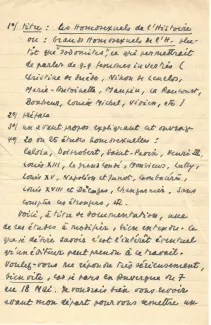 1°/ Titre : Les Homosexuels de l'Histoire
ou : Grands Homosexuels de l'H. plu-
tôt que "Sodomites", ce qui permettrait
de parler de q.q femmes invertis (
Christine de Suède, Ninon de Lenclos,
Marie-Antoinette, Maupin, la Raucourt,
Bonheur, Louise Michel, Vivien, etc.)
2°/ préface
3°/ un avant-propos expliquant cet ouvrage
4°/ 20 ou 25 études homosexuelles :
Boisrobert, Saint-Pavin, Henri III,
Louis XIII, le grand Condé, Monsieur, Lully,
Louis XV, Napoléon et Junot, Cambacérès,
Louis XVIII et Decazes, Changarnier, sans
compter les étrangers, etc.
Voici, à titre de documentation, une
de ces études à modifier, bien entendu. Ce
que je désire savoir c'est l'intérêt éventuel
qu'un éditeur peut prendre à ce travail.
Voulez-vous me répondre très sérieusement,
bien vite, car je pars en Auvergne du 7
au 18 Mai. Je voudrais bien vous revoir
avant mon départ pour vous remettre un